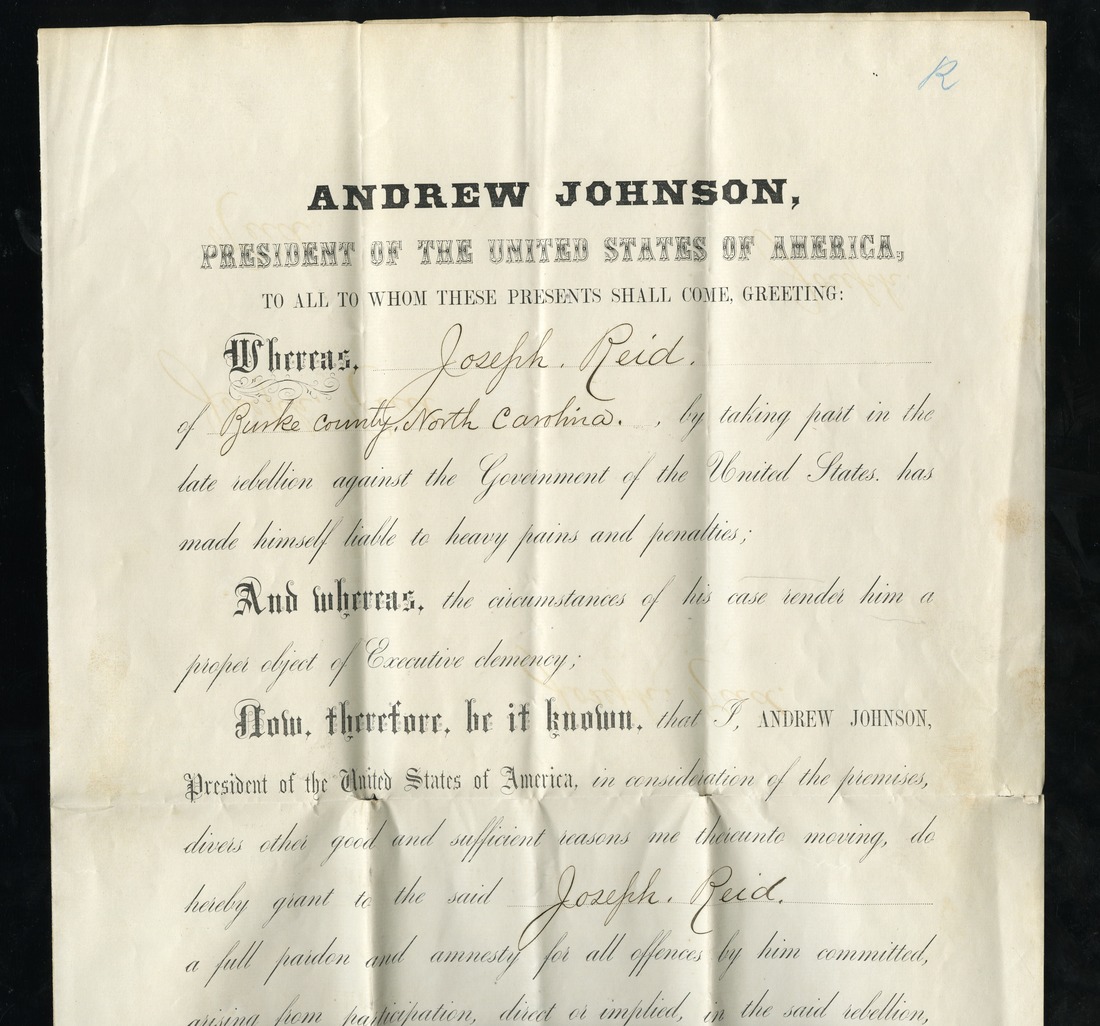 R
ANDREW JOHNSON,
PRESIDENT OF THE UNITED STATES OF AMERICA,
TO ALL TO WHOM THESE PRESENTS SHALL COME, GREETING:
Whereas, Joseph. Reid.
of Burke county, North Carolina. , by taking part in the
late rebellion against the Government of the United States. has
made himself liable to heavy pains and penalties;
And whereas, the circumstances of his case render him a
proper object of Executive clemency;
Now, therefore, be it known, that I, ANDREW JOHNSON,
President of the United States of America, in consideration of the premises,
divers other good and sufficient reasons me thereunto moving, do
hereby grant to the said Joseph. Reid.
a full pardon and amnesty for all offences by him committed,
arising from participation, direct or implied, in the said rebellion,